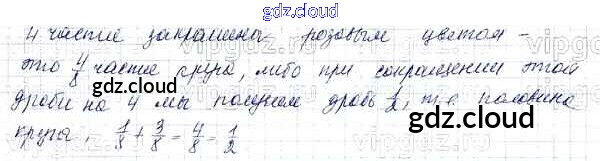 gdz.cloud
4 части закрашены розовым цветом -
это 4/8 части круга, либо при сокращении этой
дроби на 4 мы получаем дробь 1/2, т.е. половина
круга. 1/8 + 3/8 = 4/8 = 1/2
gdz.cloud
gdz.cloud